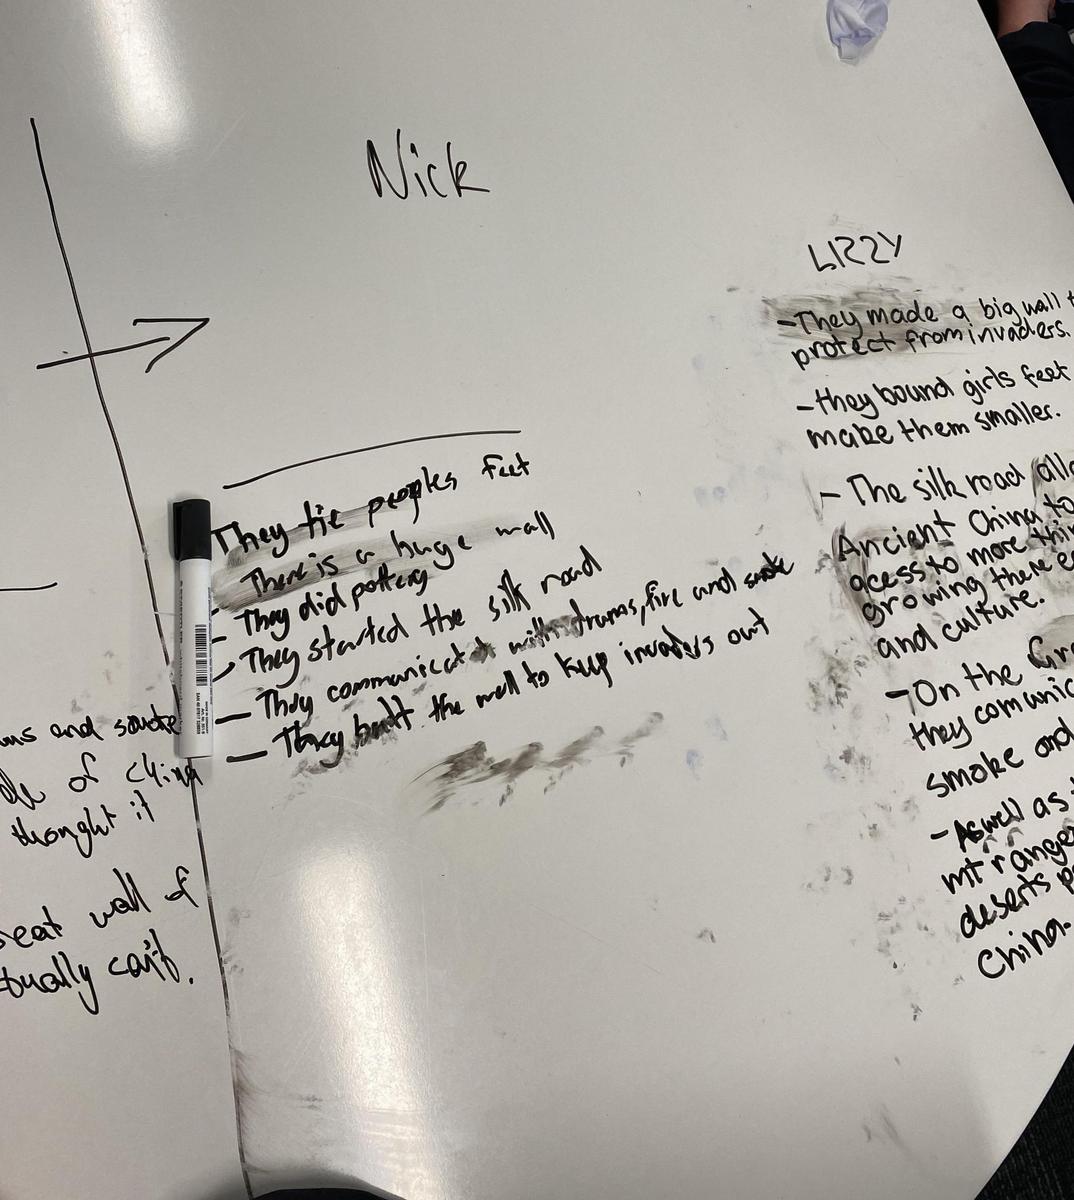 Nick
They tie peoples feet
There is a huge wall
- They did pottery
- They started the silk road
- They communicate with drums, fire and smoke
- They built the wall to keep invaders out
LIZZY
- They made a big wall
protect from invaders.
- they bound girls feet
make them smaller.
- The silk road
Ancient China to
acess to more
growing there
and culture.
- On the
they
smoke and
- Aswell as
mt ranges
deserts
China.
and smoke
of China
thought it
wall of
can't.